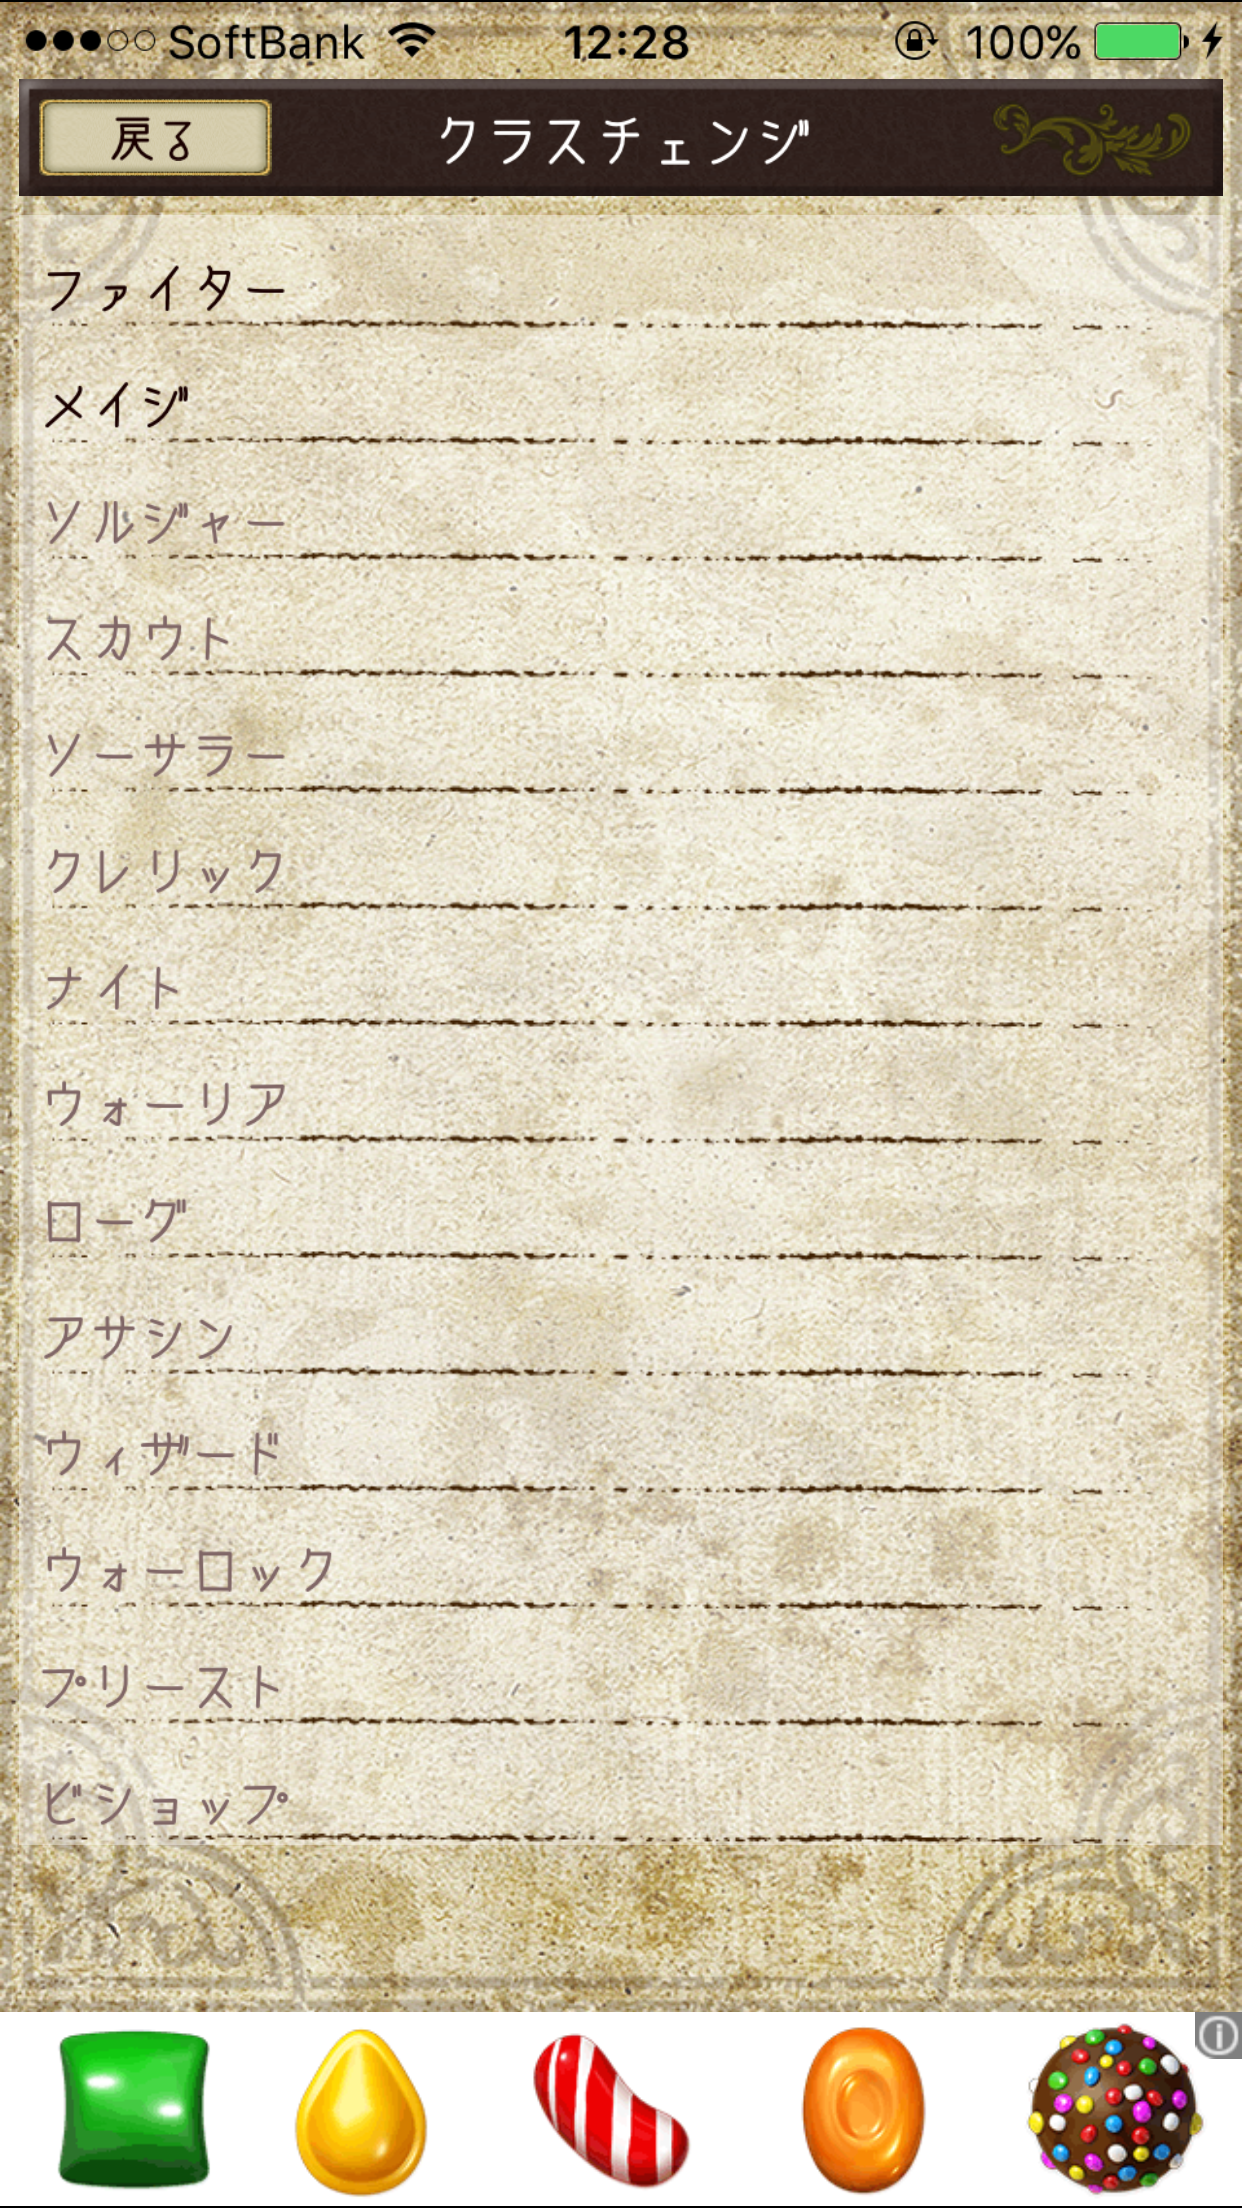 SoftBank 12:28 100%
戻る クラスチェンジ
ファイター
メイジ
ソルジャー
スカウト
ソーサラー
クレリック
ナイト
ウォーリア
ローグ
アサシン
ウィザード
ウォーロック
プリースト
ビショップ